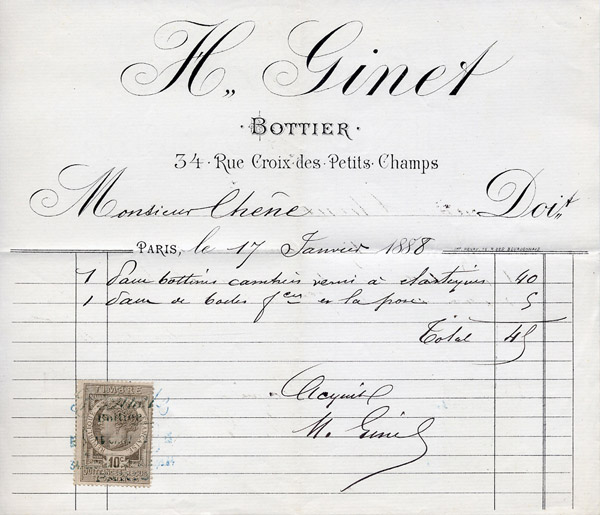 H„ Ginet
· BOTTIER ·
34 · Rue Croix-des-Petits-Champs
Monsieur Chêne Doit
PARIS, le 17 Janvier 1888
1 paire bottines cambrées verni à élastiques 40
1 paire de et la pose 5
Total 45
Acquit
H. Ginet
Bottier
10c